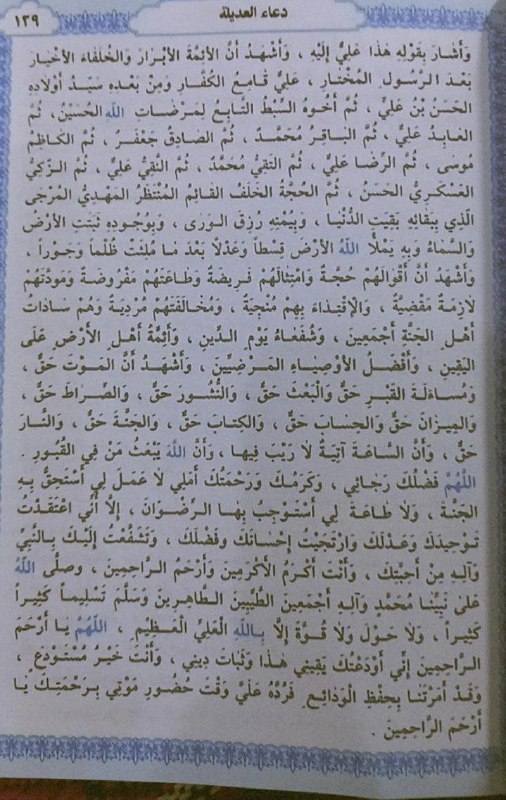 دعاء العديلة
١٣٩
وَأَشَارَ بِقَوْلِهِ هٰذَا عَلِيٌّ إِلَيْهِ ، وَأَشْهَدُ أَنَّ الأَئِمَّةَ الأَبْرَارَ وَالخُلَفَاءَ الأَخْيَارَ
بَعْدَ الرَّسُولِ المُخْتَارِ ، عَلِيٌّ قَامِعُ الكُفَّارِ وَمِنْ بَعْدِهِ سَيِّدُ أَوْلَادِهِ
الحَسَنُ بْنُ عَلِيٍّ ، ثُمَّ أَخُوهُ السِّبْطُ التَّابِعُ لِمَرْضَاتِ اللَّهِ الحُسَيْنُ ، ثُمَّ
العَابِدُ عَلِيٌّ ، ثُمَّ البَاقِرُ مُحَمَّدٌ ، ثُمَّ الصَادِقُ جَعْفَرٌ ، ثُمَّ الكَاظِمُ
مُوسَى ، ثُمَّ الرِّضَا عَلِيٌّ ، ثُمَّ التَقِيُّ مُحَمَّدٌ ، ثُمَّ النَّقِيُّ عَلِيٌّ ، ثُمَّ الزَّكِيُّ
العَسْكَرِيُّ الحَسَنُ ، ثُمَّ الحُجَّةُ الخَلَفُ القَائِمُ المُنْتَظَرُ المَهْدِيُّ المُرْجَى
الَّذِي بِبَقَائِهِ بَقِيَتِ الدُّنْيَا ، وَبِيُمْنِهِ رُزِقَ الوَرَى ، وَبِوُجُودِهِ ثَبَتَتِ الأَرْضُ
وَالسَّمَاءُ وَبِهِ يَمْلَأُ اللَّهُ الأَرْضَ قِسْطاً وَعَدْلاً بَعْدَ مَا مُلِئَتْ ظُلْماً وَجَوْراً ،
وَأَشْهَدُ أَنَّ أَقْوَالَهُمْ حُجَّةٌ وَامْتِثَالَهُمْ فَرِيضَةٌ وَطَاعَتَهُمْ مَفْرُوضَةٌ وَمَوَدَّتَهُمْ
لَازِمَةٌ مَقْضِيَّةٌ ، وَالإِقْتِدَاءَ بِهِمْ مُنْجِيَةٌ ، وَمُخَالَفَتَهُمْ مُرْدِيَةٌ وَهُمْ سَادَاتُ
أَهْلِ الجَنَّةِ أَجْمَعِينَ ، وَشُفَعَاءُ يَوْمِ الدِّينِ ، وَأَئِمَّةُ أَهْلِ الأَرْضِ عَلَى
اليَقِينِ ، وَأَفْضَلُ الأَوْصِيَاءِ المَرْضِيِّينَ ، وَأَشْهَدُ أَنَّ المَوْتَ حَقٌّ ،
وَمُسَاءَلَةَ القَبْرِ حَقٌّ وَالْبَعْثَ حَقٌّ ، وَالنُّشُورَ حَقٌّ ، وَالصِّرَاطَ حَقٌّ ،
وَالمِيزَانَ حَقٌّ وَالحِسَابَ حَقٌّ ، وَالكِتَابَ حَقٌّ ، وَالجَنَّةَ حَقٌّ ، وَالنَّارَ
حَقٌّ ، وَأَنَّ السَّاعَةَ آتِيَةٌ لَا رَيْبَ فِيهَا ، وَأَنَّ اللَّهَ يَبْعَثُ مَنْ فِي القُبُورِ .
اللَّهُمَّ فَضْلُكَ رَجَائِي ، وَكَرَمُكَ وَرَحْمَتُكَ أَمَلِي لَا عَمَلَ لِي أَسْتَحِقُّ بِهِ
الجَنَّةَ ، وَلَا طَاعَةَ لِي أَسْتَوْجِبُ بِهَا الرِّضْوَانَ ، إِلَّا أَنِّي اعْتَقَدْتُ
تَوْحِيدَكَ وَعَدْلَكَ وَارْتَجَيْتُ إِحْسَانَكَ وَفَضْلَكَ ، وَتَشَفَّعْتُ إِلَيْكَ بِالنَّبِيِّ
وَآلِهِ مِنْ أَحِبَّتِكَ ، وَأَنْتَ أَكْرَمُ الأَكْرَمِينَ وَأَرْحَمُ الرَّاحِمِينَ ، وصلَّى اللَّهُ
عَلَى نَبِيِّنَا مُحَمَّدٍ وَآلِهِ أَجْمَعِينَ الطَّيِّبِينَ الطَاهِرِينَ وَسَلَّمَ تَسْلِيماً كَثِيراً
كَثِيراً ، وَلَا حَوْلَ وَلَا قُوَّةَ إِلَّا بِاللَّهِ العَلِيِّ العَظِيمِ ، اللَّهُمَّ يَا أَرْحَمَ
الرَّاحِمِينَ إِنِّي أَوْدَعْتُكَ يَقِينِي هٰذَا وَثَبَاتَ دِينِي ، وَأَنْتَ خَيْرُ مُسْتَوْدَعٍ ،
وَقَدْ أَمَرْتَنَا بِحِفْظِ الوَدَائِعِ فَرُدَّهُ عَلَيَّ وَقْتَ حُضُورِ مَوْتِي بِرَحْمَتِكَ يَا
أَرْحَمَ الرَّاحِمِينَ .